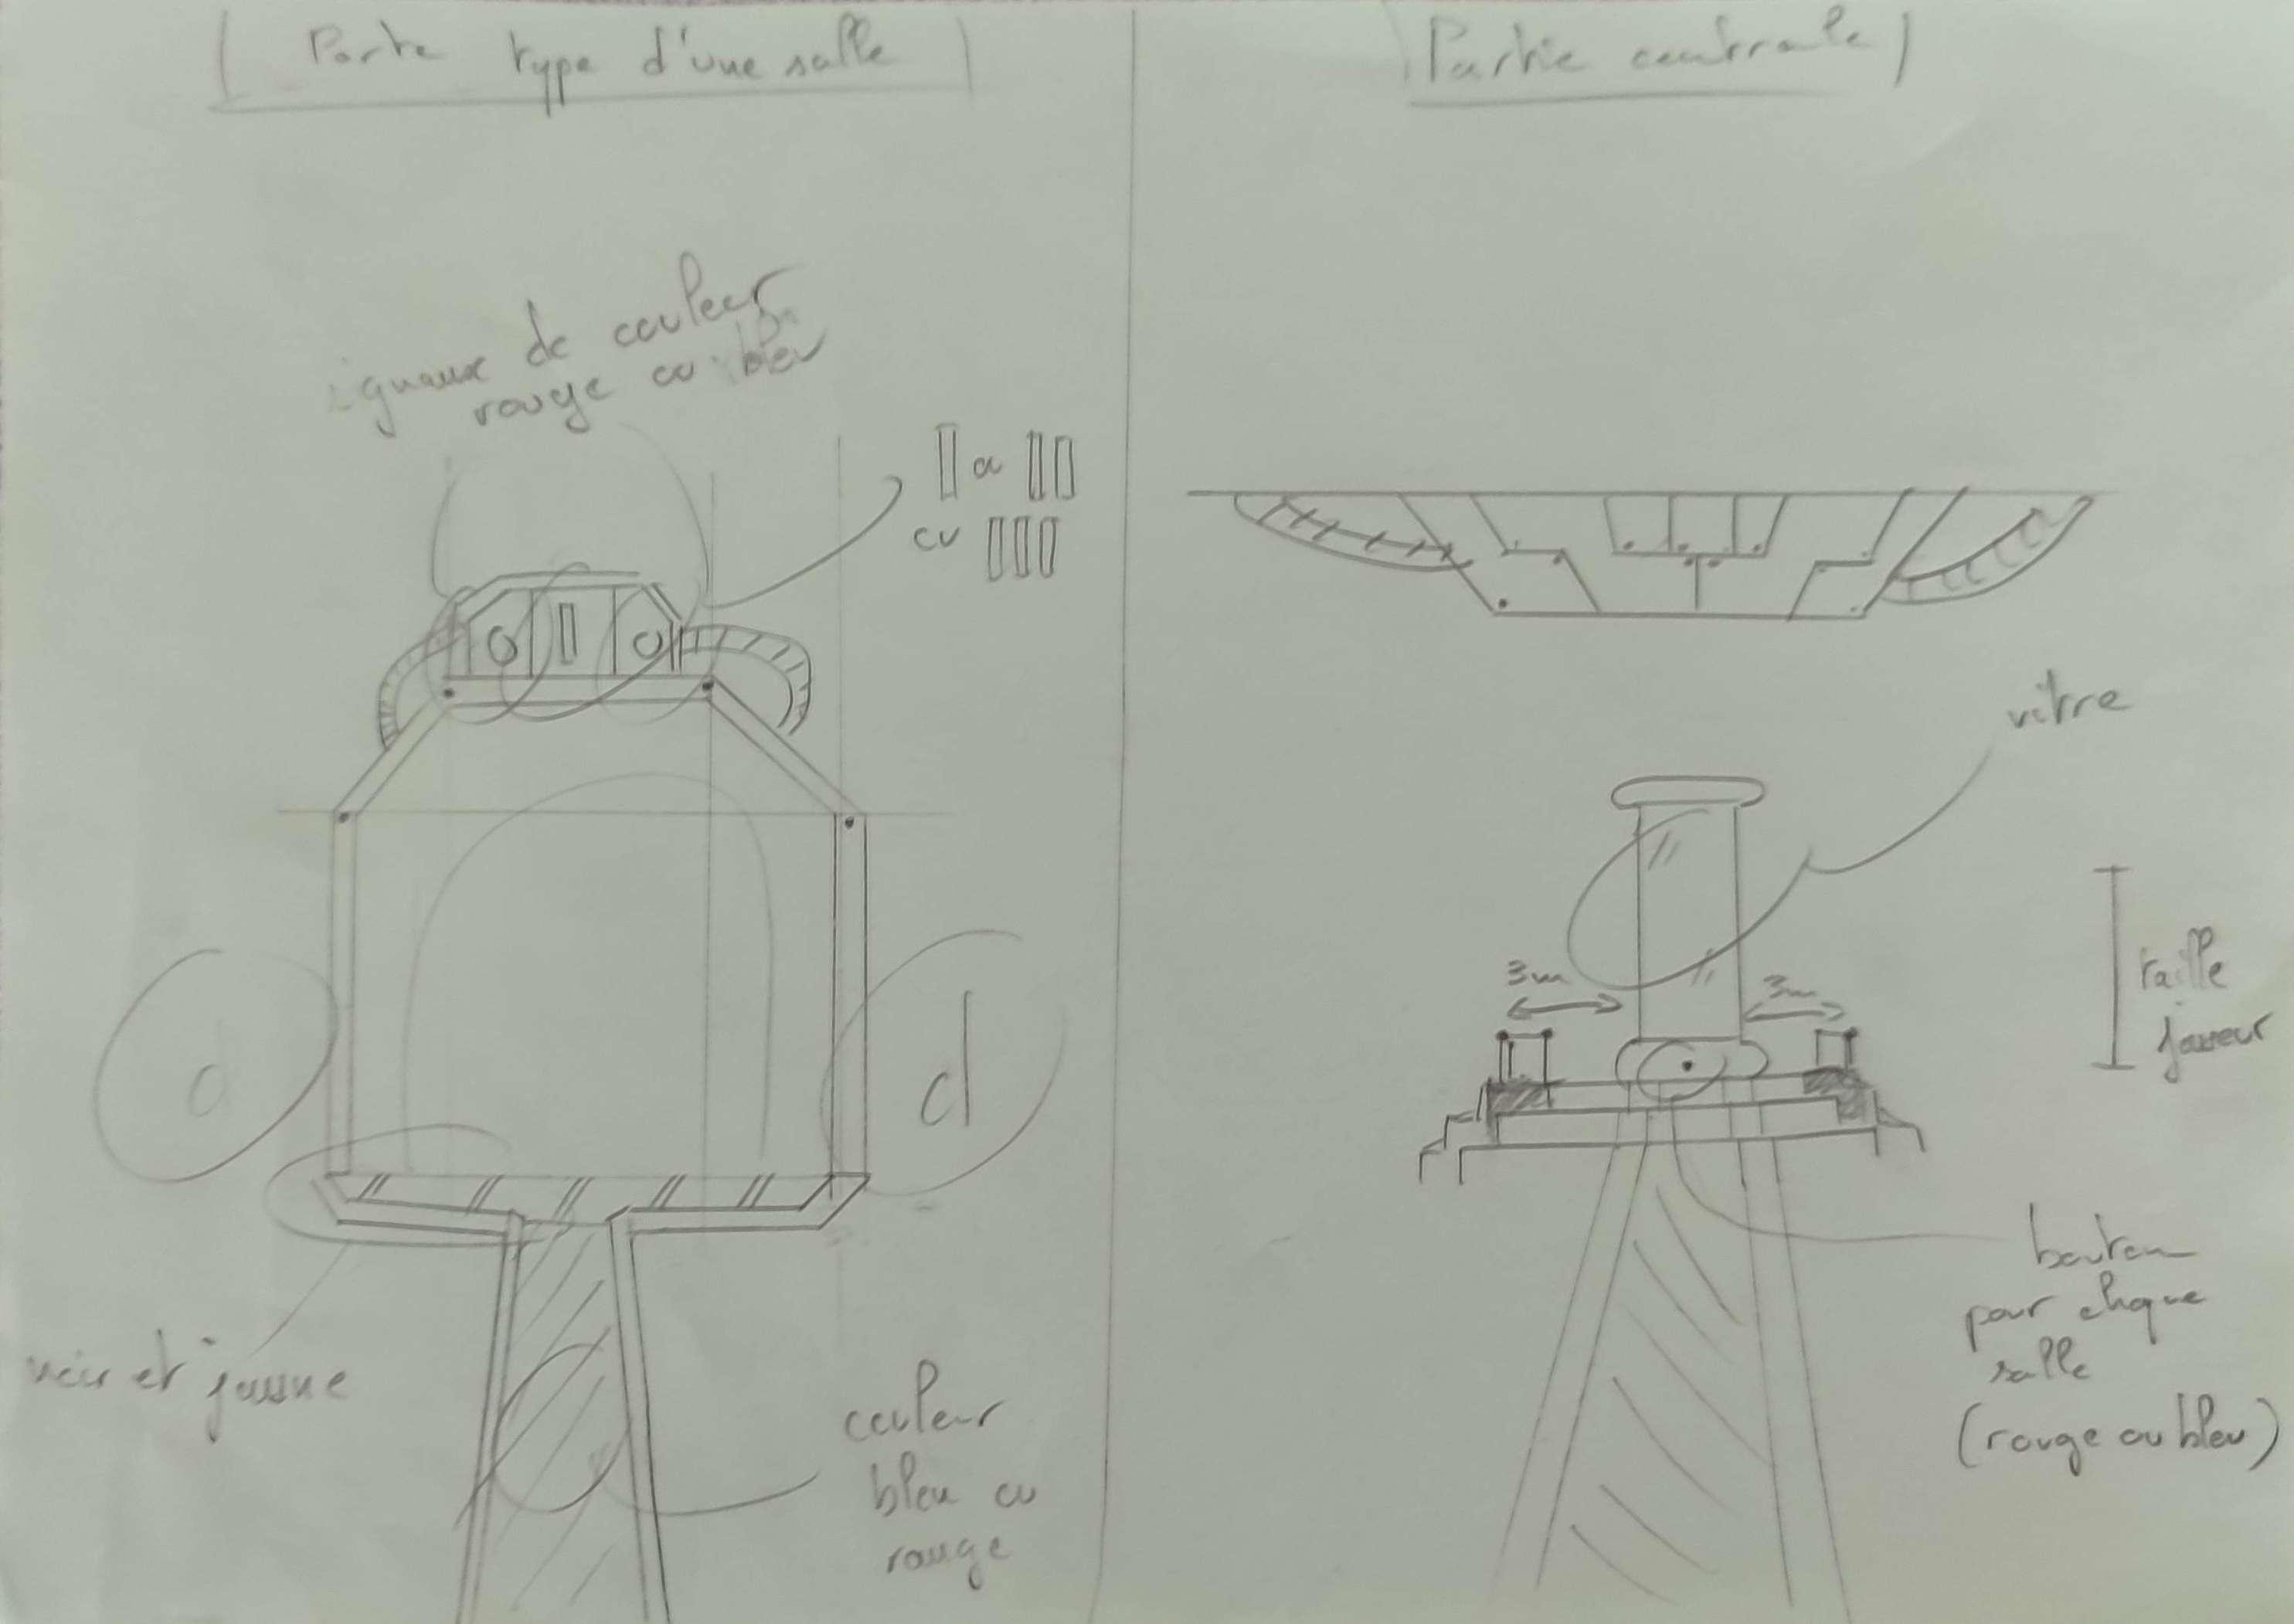 Porte type d'une salle
ignaux de couleur
rouge ou bleu
ou
ou
d
d
noir et jaune
couleur
bleu ou
rouge
Partie centrale
vitre
3m
3m
taille
joueur
bouton
pour chque
salle
(rouge ou bleu)